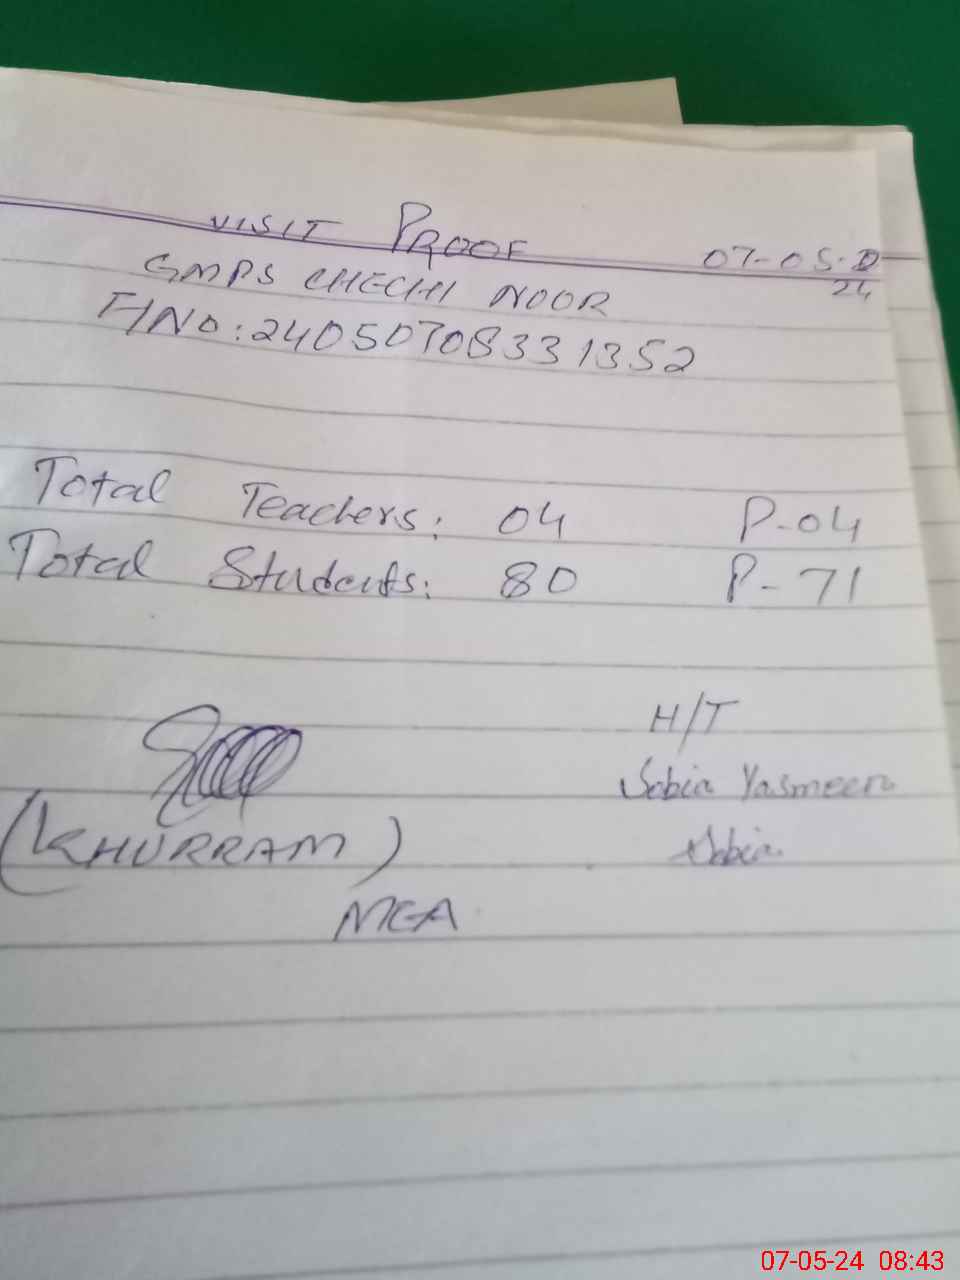 VISIT PROOF 07-05-
24
GMPS CHECHI NOOR
FINO:24050708331352
Total Teachers: 04 P-04
Total Students: 80 P-71
H/T
Sobia Yasmeen
Sobia
(KHURRAM)
MEA
07-05-24 08:43